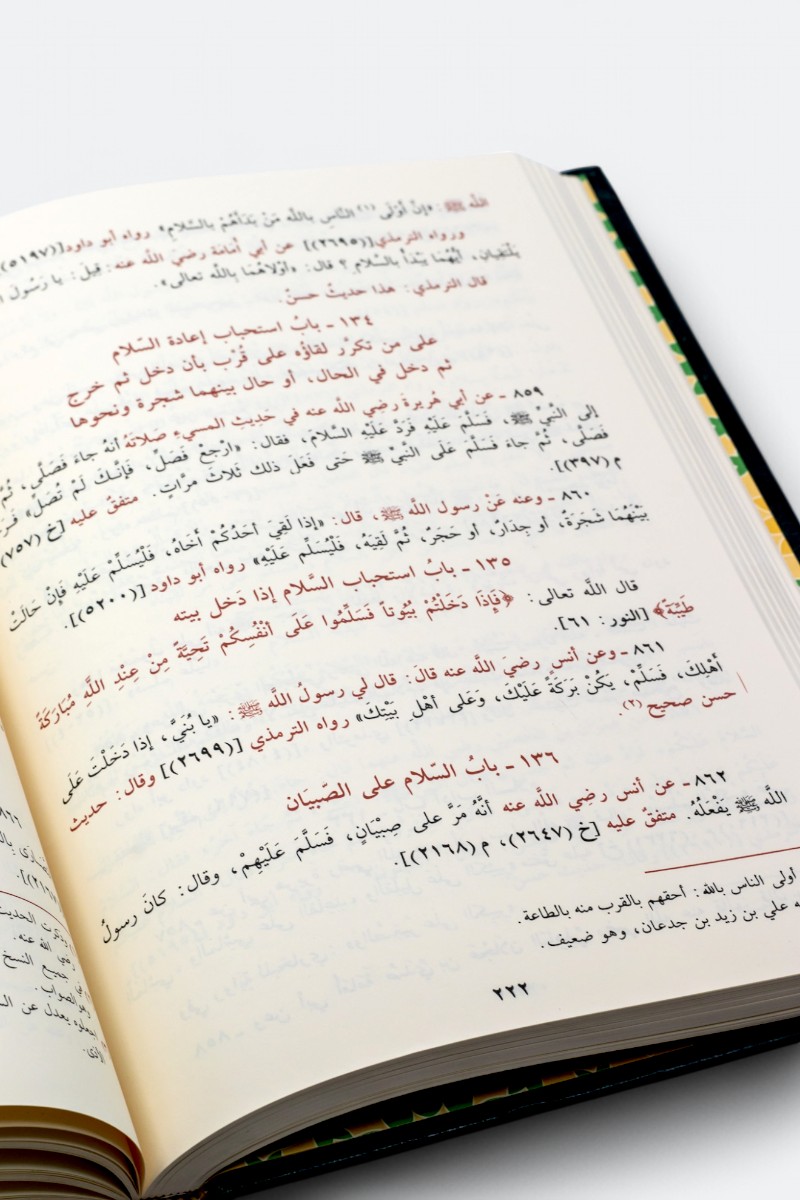 اللَّه ﷺ: «إنَّ أَوْلَى (١) النَّاسِ باللَّه مَنْ بَدَأَهُمْ بالسَّلامِ» رواه أبو داود[(٥١٩٧)
ورواه الترمذي[(٢٦٩٥)] عن أبي أُمَامَةَ رضيَ اللَّه عنه: قِيلَ: يا رَسُولَ
يَلْتَقِيَانِ، أَيُّهُمَا يَبْدَأُ بالسَّلامِ؟ قال: «أَوْلاهُمَا بِاللَّه تعالى».
قال الترمذي: هذا حديثٌ حسنٌ.
١٣٤ ـ بابُ استحباب إعادة السَّلام
على من تكرَّر لقاؤه على قُرْب بأن دخل ثم خرج
ثم دخل في الحال، أو حال بينهما شجرة ونحوها
٨٥٩ ـ عن أبي هُريرةَ رضي اللَّه عنه في حَدِيثِ المسيءِ صَلاتَهُ أنهُ جاءَ فَصَلَّى، ثُمَّ
إلى النَّبيِّ ﷺ، فَسَلَّمَ عَلَيْهِ فَرَدَّ عَلَيْهِ السَّلامَ، فقال: «ارْجِعْ فَصَلِّ، فَإنَّكَ لَمْ تُصَلِّ»
فَصَلَّى، ثُمَّ جاءَ فَسَلَّمَ عَلَى النَّبيِّ ﷺ حَتى فَعَلَ ذلك ثَلاثَ مرَّاتٍ. متفقٌ عليه [خ (٧٥٧)
م (٣٩٧)].
٨٦٠ ـ وعنه عَنْ رسول اللَّه ﷺ، قال: «إذا لَقِيَ أحَدُكُمْ أَخَاهُ، فَلْيُسَلِّمْ عَلَيْهِ فَإِنْ حَالَتْ
بَيْنَهُمَا شَجَرَةٌ، أو جِدَارٌ، أو حَجَرٌ، ثُمَّ لَقِيَهُ، فَلْيُسَلِّمْ عَلَيْهِ» رواه أبو داود [(٥٢٠٠)].
١٣٥ ـ بابُ استحباب السَّلام إذا دَخل بيته
قال اللَّه تعالى: ﴿فَإِذَا دَخَلْتُمْ بُيُوتاً فَسَلِّمُوا عَلَى أَنْفُسِكُمْ تَحِيَّةً مِنْ عِنْدِ اللَّهِ مُبَارَكَةً
طَيِّبَةً﴾ [النور: ٦١].
٨٦١ ـ وعن أنسٍ رضيَ اللَّه عنه قالَ: قال لي رسولُ اللَّه ﷺ: «يا بُنَيَّ، إذا دَخَلْتَ عَلَى
أَهْلِكَ، فَسَلِّمْ، يَكُنْ بَرَكَةً عَلَيْكَ، وَعَلى أهْلِ بَيْتِكَ» رواه الترمذي [(٢٦٩٩)] وقال: حديث
حسن صحيح (٢).
١٣٦ ـ بابُ السَّلام على الصِّبيَان
٨٦٢ ـ عن أنس رضِي اللَّه عنه أنَّهُ مَرَّ على صِبْيَانٍ، فَسَلَّمَ عَلَيْهِمْ، وقال: كانَ رسولُ
اللَّه ﷺ يَفْعَلُهُ. متفقٌ عليه [خ (٢٦٤٧)، م (٢١٦٨)].
أولى الناس بالله: أحقهم بالقرب منه بالطاعة.
علي بن زيد بن جدعان، وهو ضعيف.
٢٢٢